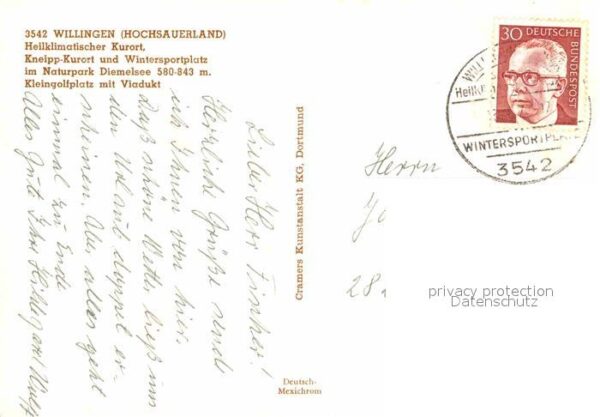 3542 WILLINGEN (HOCHSAUERLAND)
Heilklimatischer Kurort,
Kneipp-Kurort und Wintersportplatz
im Naturpark Diemelsee 580-843 m.
Kleingolfplatz mit Viadukt
Lieber Herr Fischer!
Herzliche Grüße sende
ich Ihnen von hier.
Das schöne Wetter ließ uns
den Urlaub doppel er-
scheinen. Aber alles geht
einmal zu Ende
Alles Gute Ihre Hildegard
Cramers Kunstanstalt KG, Dortmund
Deutsch-
Mexichrom
30
DEUTSCHE
BUNDESPOST
WILL
Heilk
WINTERSPORTPL
3542
Herrn
Jo
28
privacy protection
Datenschutz